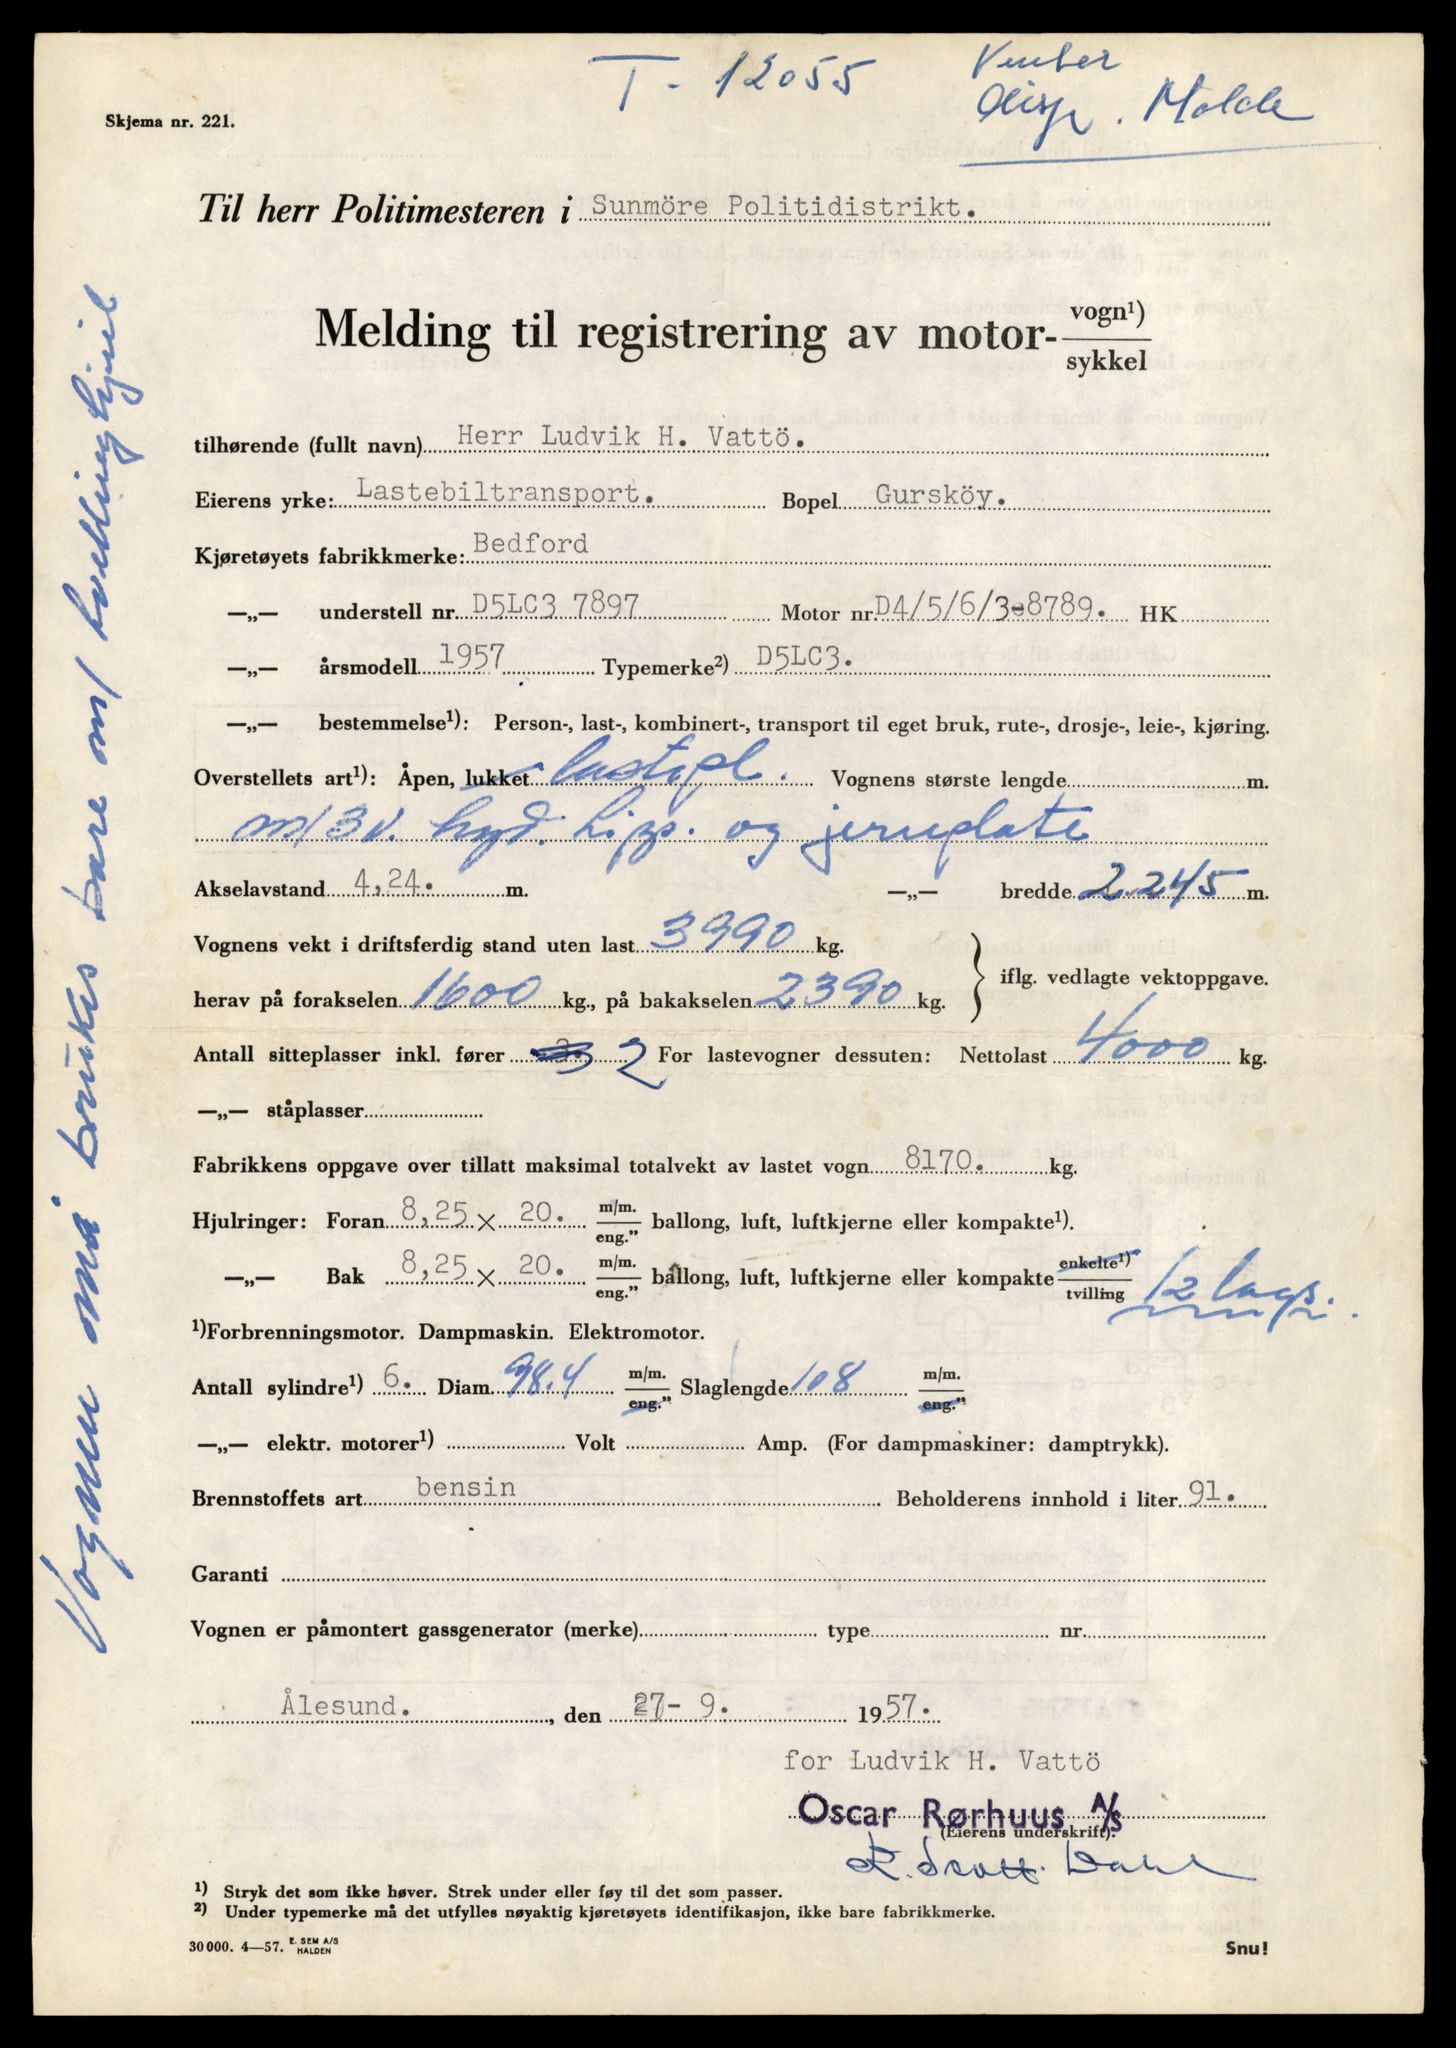 T - 12055
Venter
disp. Molde
Skjema nr. 221.
Til herr Politimesteren i Sunmöre Politidistrikt.
Melding til registrering av motor- vogn¹)
sykkel
tilhørende (fullt navn) Herr Ludvik H. Vattö.
Eierens yrke: Lastebiltransport. Bopel Gursköy.
Kjøretøyets fabrikkmerke: Bedford
—„— understell nr. D5LC3 7897 Motor nr. D4/5/6/3-8789. HK
—„— årsmodell 1957 Typemerke²) D5LC3.
—„— bestemmelse¹): Person-, last-, kombinert-, transport til eget bruk, rute-, drosje-, leie-, kjøring.
Overstellets art¹): Åpen, lukket lastepl. Vognens største lengde m.
m/3v. hyd. tipp. og jernplate
Akselavstand 4,24. m. —„— bredde 2.245 m.
Vognens vekt i driftsferdig stand uten last 3990 kg.
herav på forakselen 1600 kg., på bakakselen 2390 kg. iflg. vedlagte vektoppgave.
Antall sitteplasser inkl. fører 3. 2 For lastevogner dessuten: Nettolast 4000 kg.
—„— ståplasser
Fabrikkens oppgave over tillatt maksimal totalvekt av lastet vogn 8170. kg.
Hjulringer: Foran 8,25 × 20. m/m. eng." ballong, luft, luftkjerne eller kompakte¹).
—„— Bak 8,25 × 20. m/m. eng." ballong, luft, luftkjerne eller kompakte enkelte¹) tvilling 12 lags.
¹)Forbrenningsmotor. Dampmaskin. Elektromotor.
Antall sylindre¹) 6. Diam. 98.4 m/m. eng." Slaglengde 108 m/m. eng."
—„— elektr. motorer¹) Volt Amp. (For dampmaskiner: damptrykk).
Brennstoffets art bensin Beholderens innhold i liter 91.
Garanti
Vognen er påmontert gassgenerator (merke) type nr.
Ålesund. , den 27- 9. 1957.
for Ludvik H. Vattö
Oscar Rørhuus A/S
(Eierens underskrift).
¹) Stryk det som ikke høver. Strek under eller føy til det som passer.
²) Under typemerke må det utfylles nøyaktig kjøretøyets identifikasjon, ikke bare fabrikkmerke.
30000. 4—57. E. SEM A/S HALDEN Snu!
Vognen må brukes bare m/ tvillinghjul